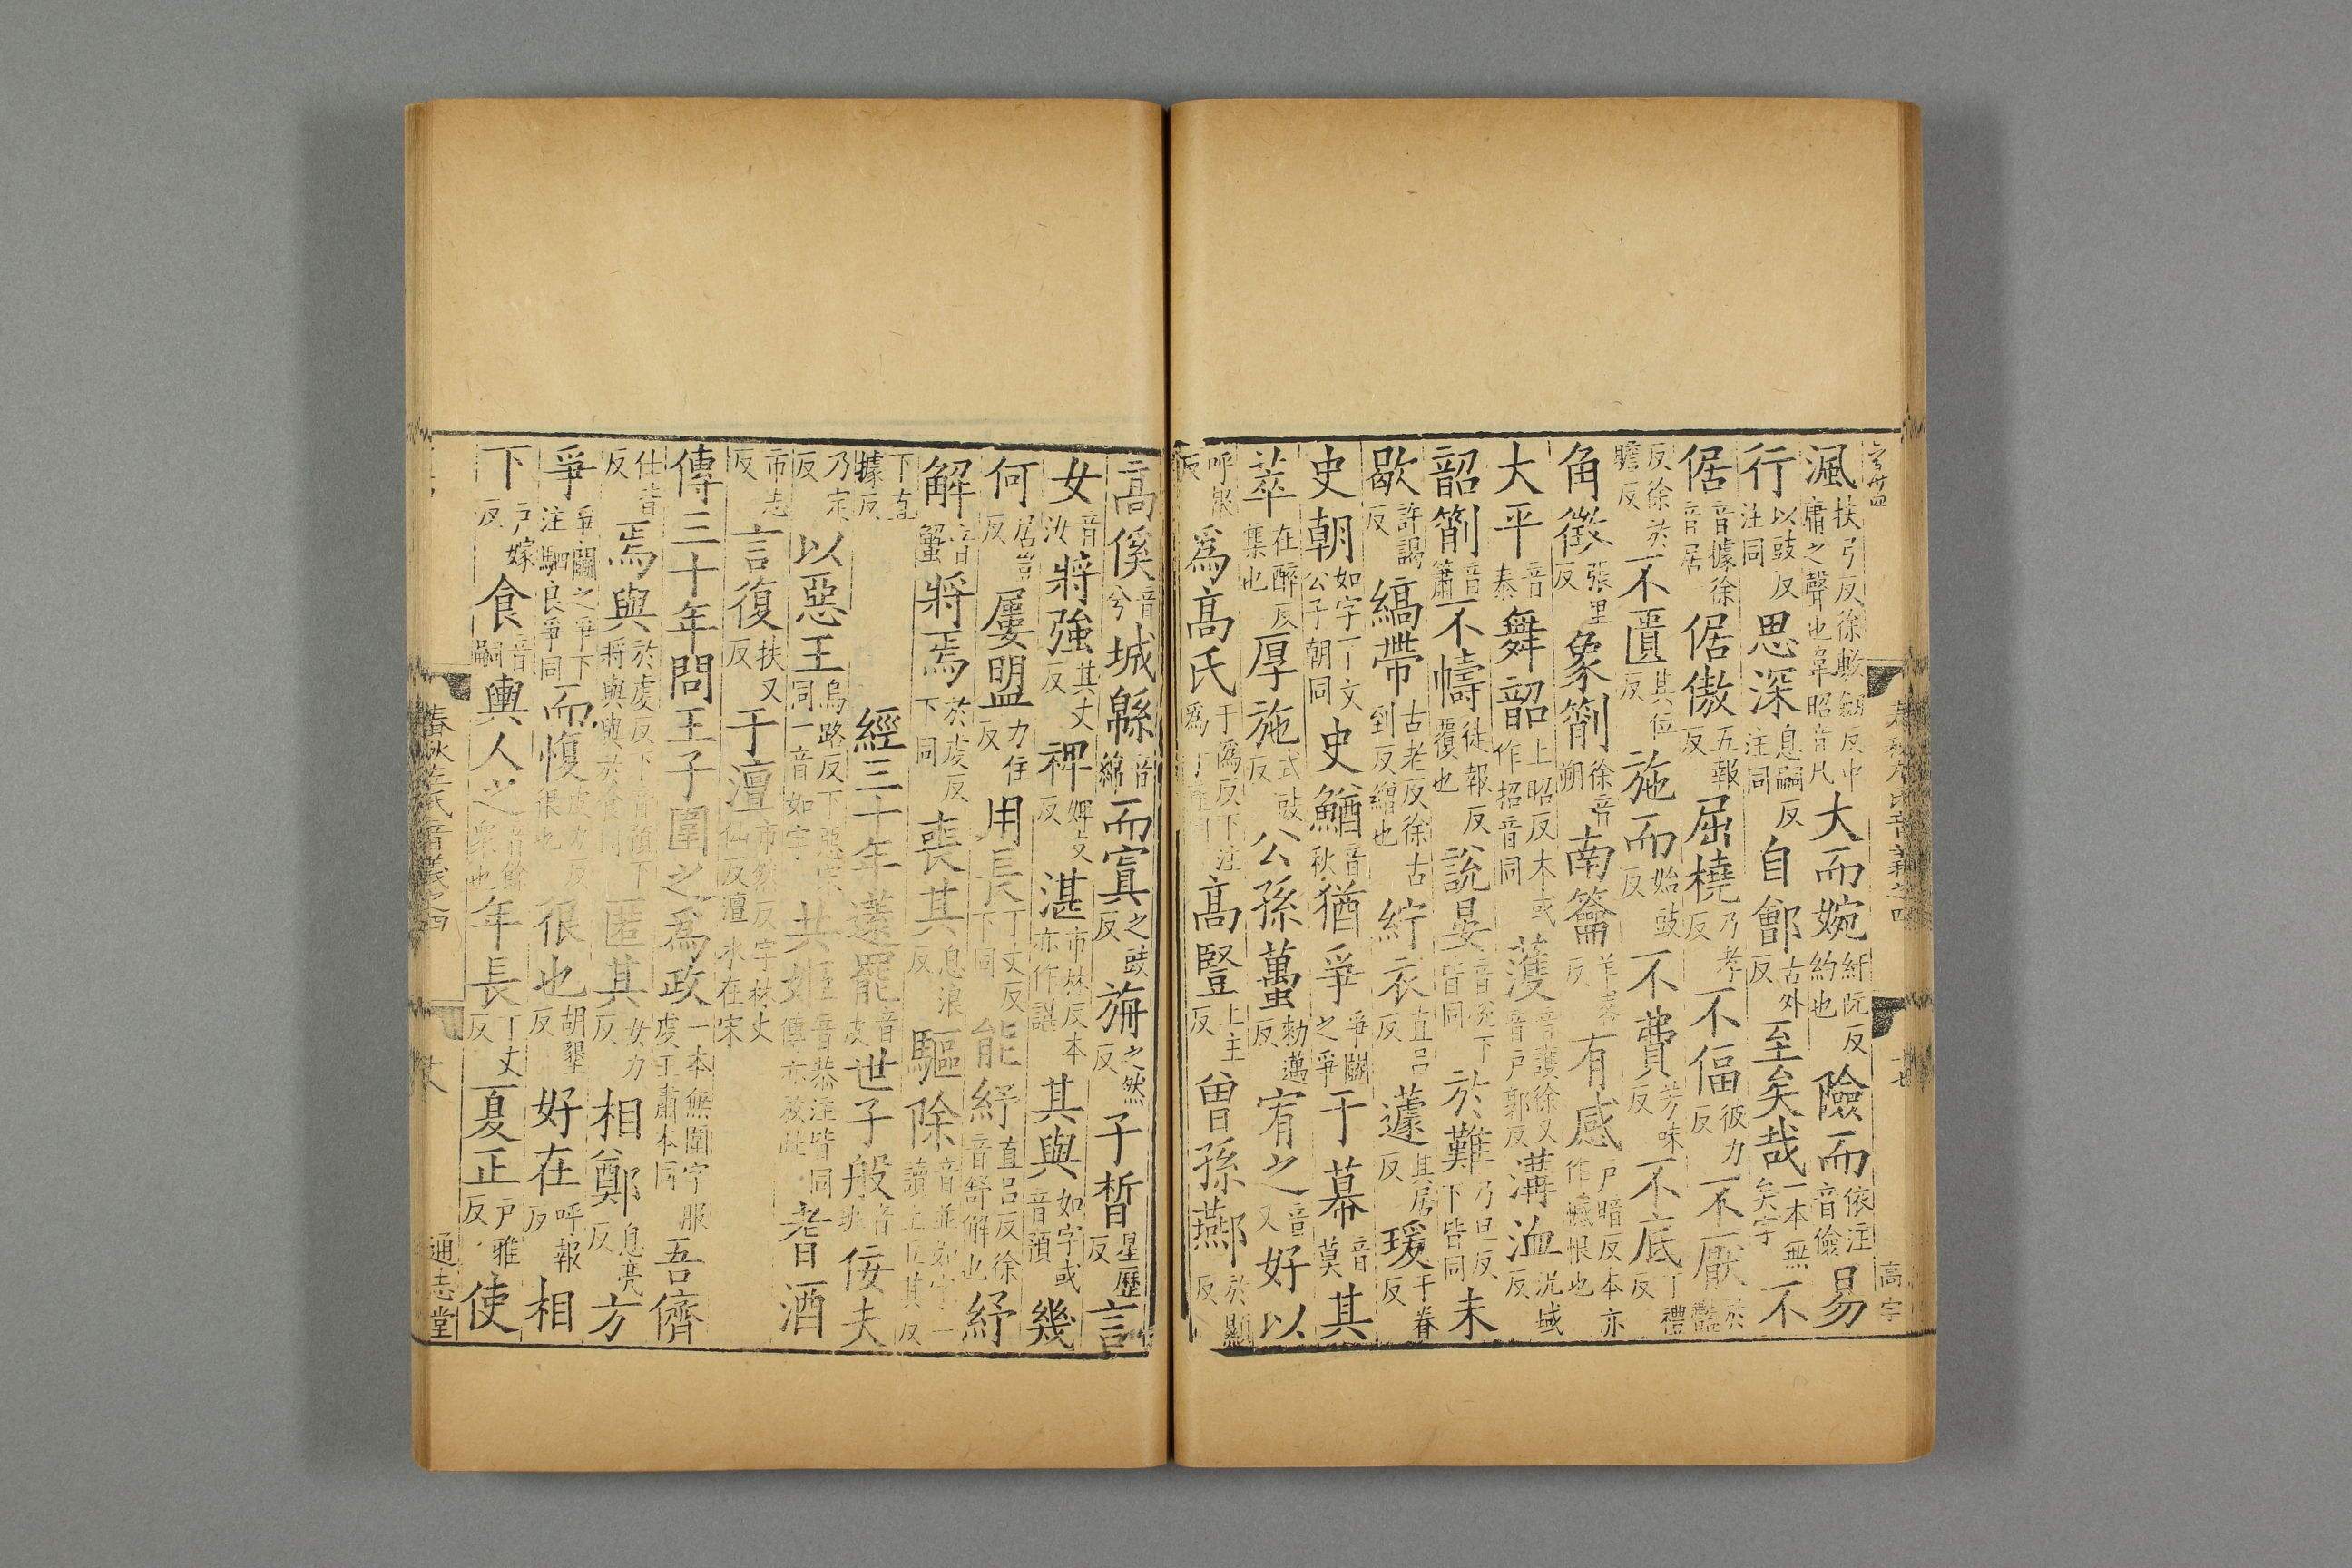 渢扶弓反徐敷劔反中庸之聲也韋昭音凡大而婉紆阮反約也險而依注音儉易
行以豉反注同思深息嗣反注同自鄶古外反至矣哉一本無矣字不
倨音據徐音居倨傲五報反屈橈乃孝反不偪彼力反不厭於豔
反徐於贍反不匱其位反施而始豉反不費芳味反不底丁禮反
角徵張里反象箾徐音朔南籥羊畧反有感戶暗反本亦作憾恨也
大平音泰舞韶上昭反本或作招音同濩音護徐又音戶郭反溝洫況域反
韶箾音簫不幬徒報反覆也說晏音悅下皆同於難乃旦反下皆同未
歇許謁反縞帶古老反徐古到反繒也紵衣直呂反蘧其居反瑗于眷反
史朝如字一丁文公子朝同史鰌音秋猶爭爭鬭之爭于幕音莫其
萃在醉反集也厚施式豉反公孫蠆勑邁反宥之音又好以
呼報反爲高氏于僞反下注爲高豎上主反曾孫酀於顯反
高傒音兮城緜音綿而寘之豉反旃之然反子晳星歷反言
女音汝將強其丈反裨婢支反湛市林反本亦作諶其與如字或音預幾
何居豈反屢盟力住反用長丁丈反下同能紓直呂反徐音舒解也紓
解音蟹將焉於虔反下同喪其息浪反驅除
下直據反經三十年薳罷音皮世子般音班佞夫
乃定反以惡王烏路反下惡同一音如字共姬音恭注皆同傳亦放此耆酒
市志反言復扶又反于澶市然反字林丈仙反澶水在宋
傳三十年問王子圍之爲政一本無圍字服虔王肅本同吾儕
仕皆反焉與於虔反下音預下將與與於食同匿其女力反相鄭息亮反方
爭爭鬭之爭下注駟良爭同而愎皮力反很也很也胡墾反好在呼報反相
下戶嫁反食音嗣輿人之音餘衆也年長丁丈反夏正戶雅反使
春秋左氏音義之四
通志堂